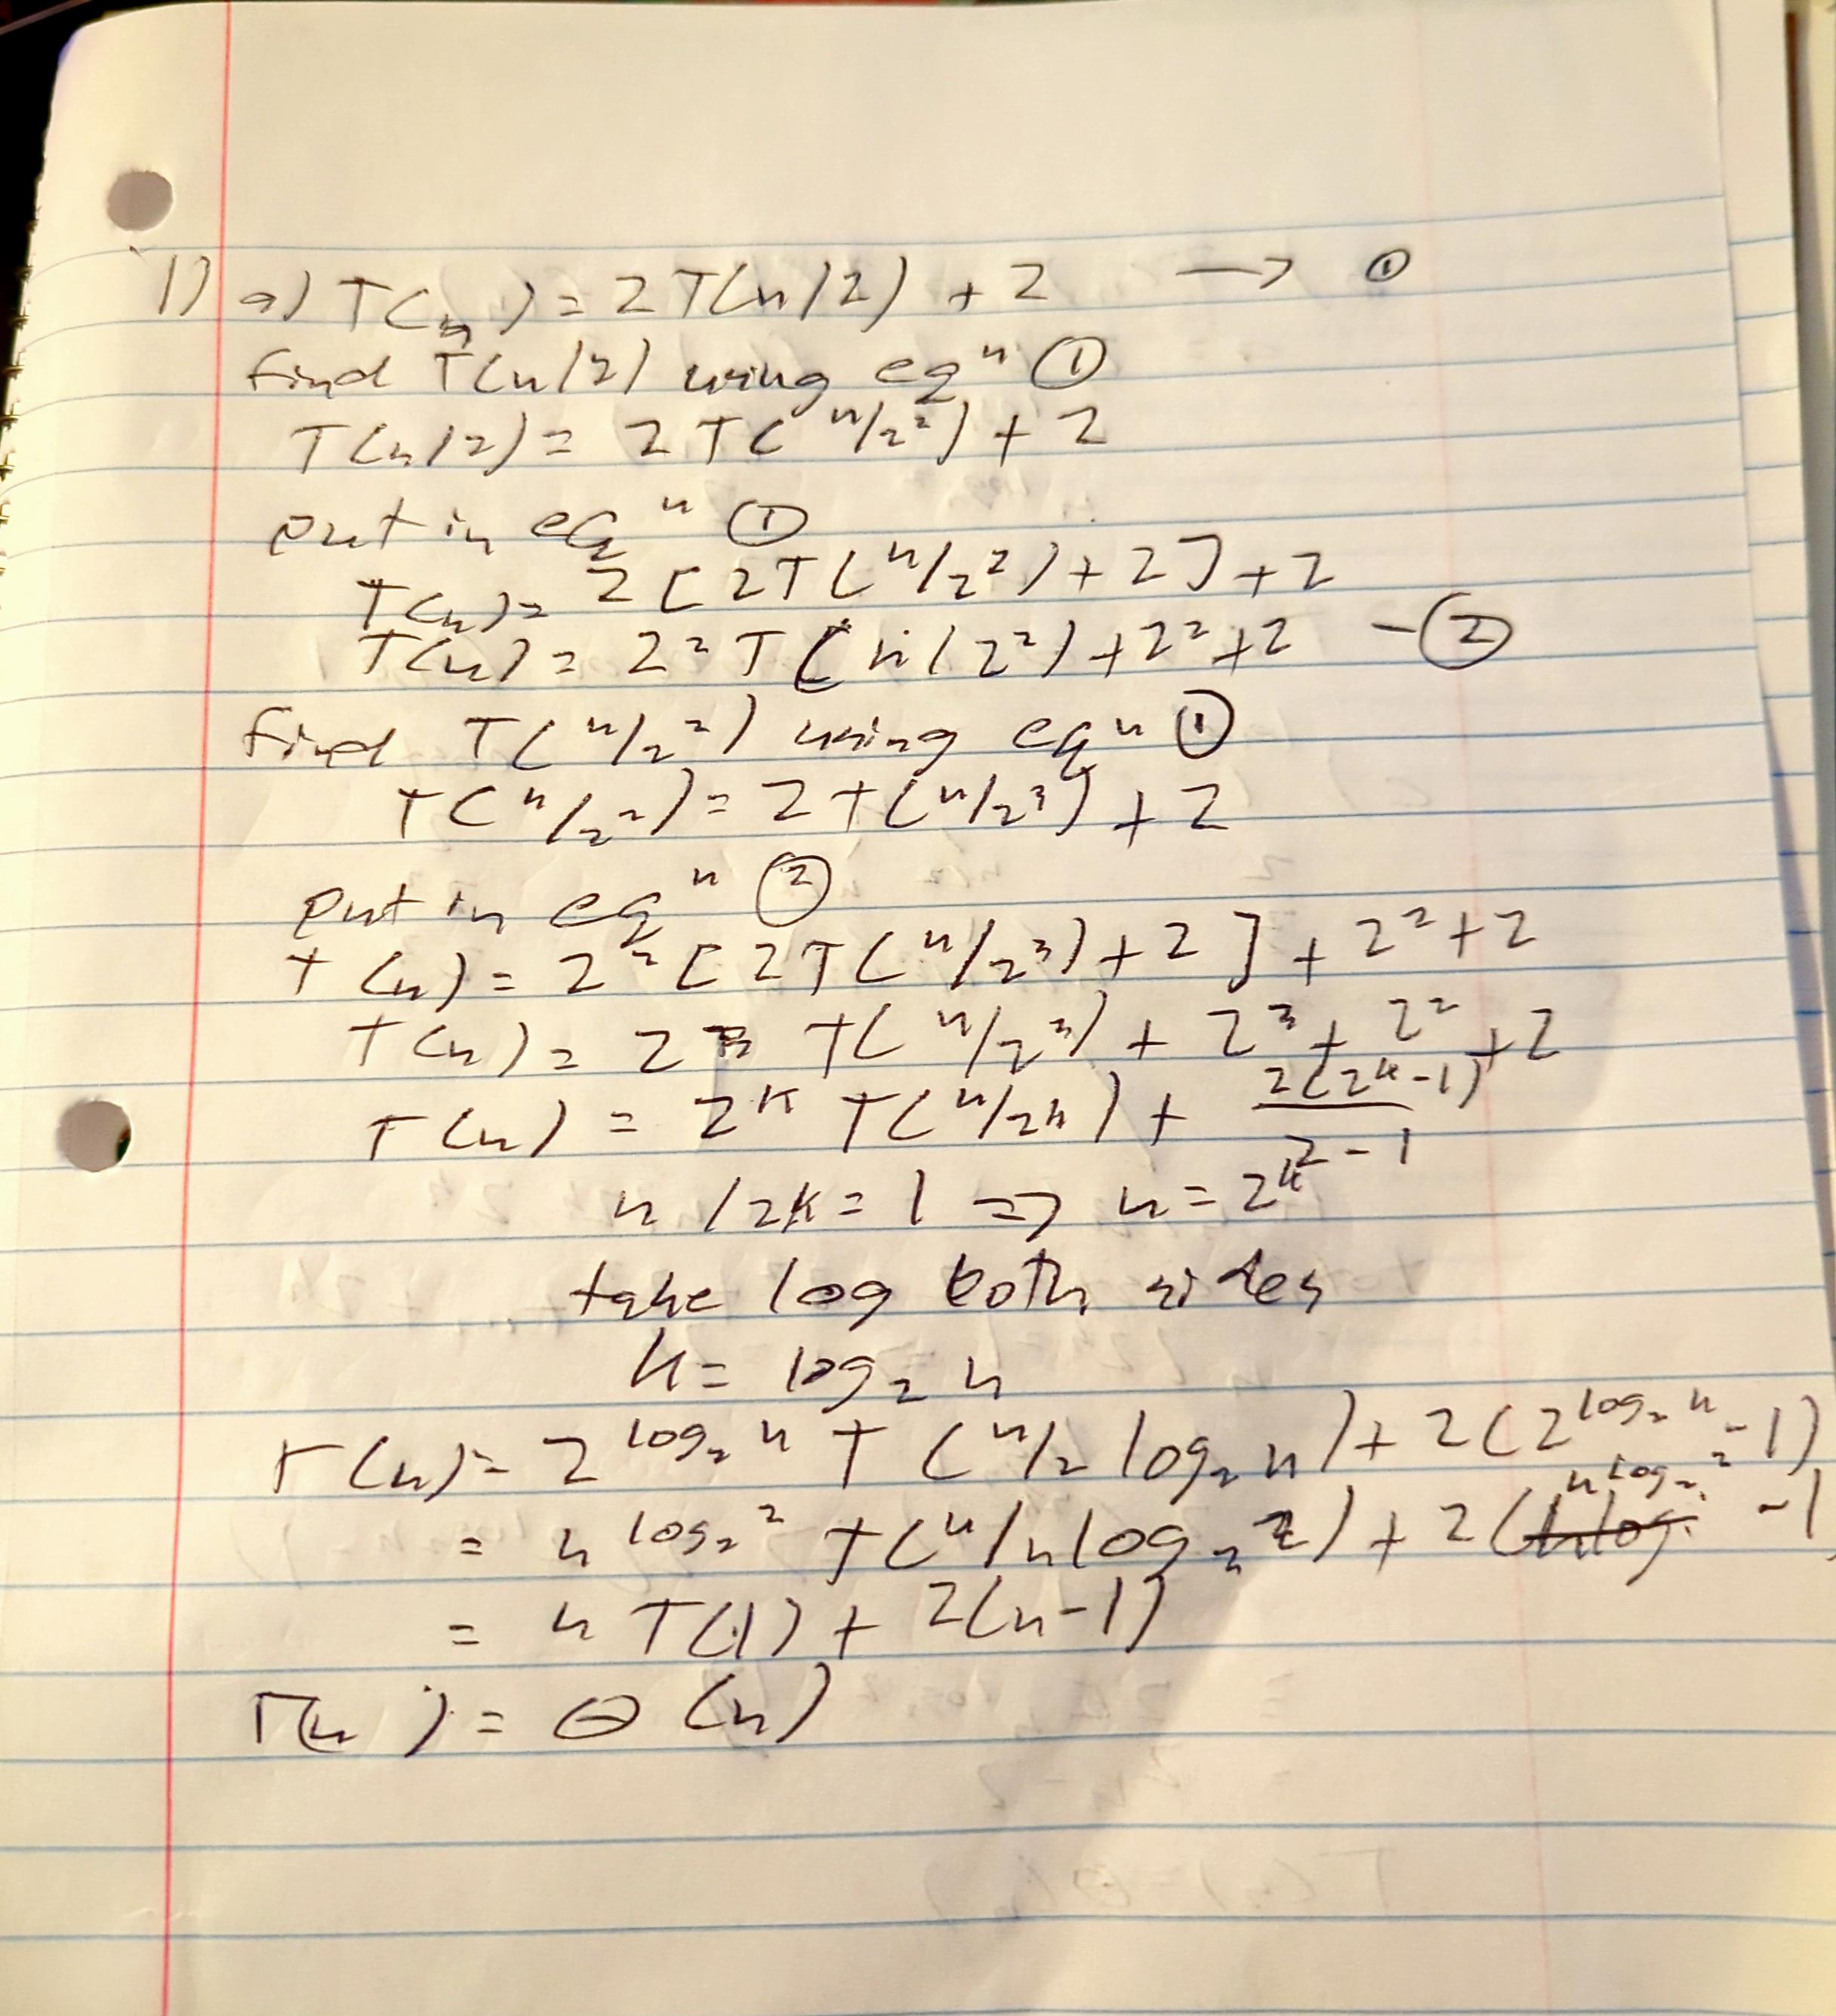 1) a) T(n) = 2T(n/2) + 2 → ①
find T(n/2) using eqⁿ ①
T(n/2) = 2T(n/2²) + 2
put in eqⁿ ①
T(n) = 2[2T(n/2²) + 2] + 2
T(n) = 2²T(n/2²) + 2² + 2 - ②
find T(n/2²) using eqⁿ ①
T(n/2²) = 2T(n/2³) + 2
put in eqⁿ ②
T(n) = 2²[2T(n/2³) + 2] + 2² + 2
T(n) = 2³ T(n/2³) + 2³ + 2² + 2
T(n) = 2ᵏ T(n/2k) + 2(2ᵏ-1)/2-1
n/2k = 1 => n = 2ᵏ
take log both sides
k = log₂ n
T(n) = 2^log₂ n T(n/2 log₂ n) + 2(2^log₂ n - 1)
= n^log₂ 2 T(n/n log₂ 2) + 2(n^log₂ 2 - 1
= n T(1) + 2(n-1)
T(n) = Θ(n)